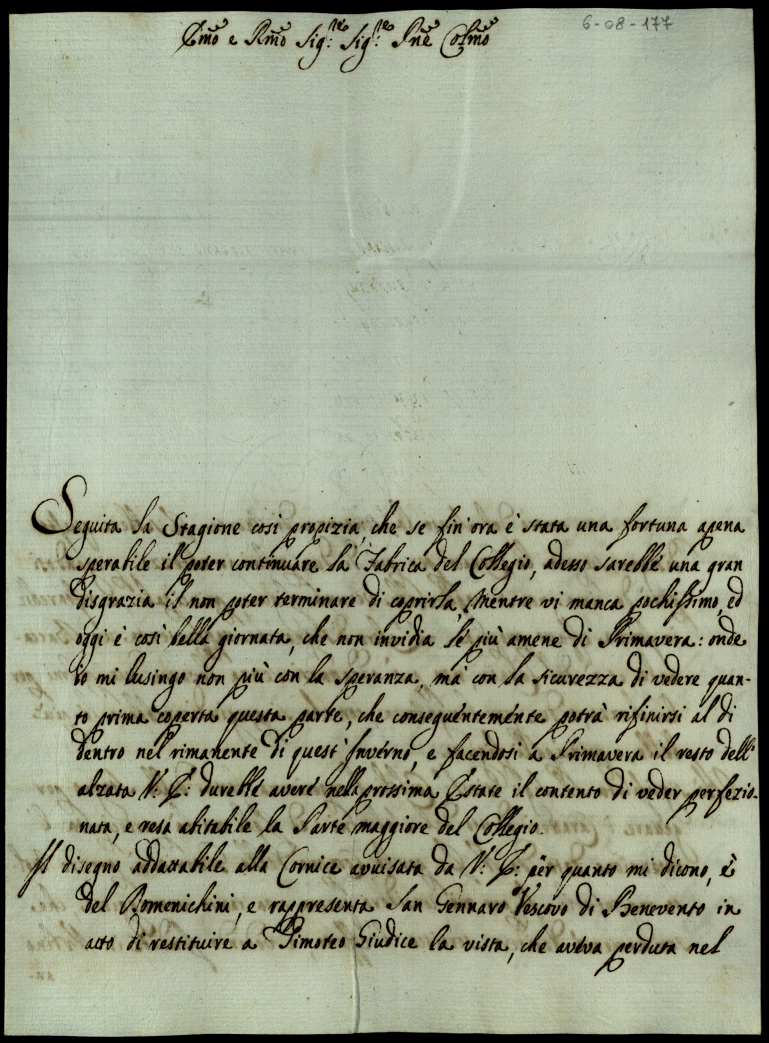 6-08-177
Emo e Rmo Sig:re Sig:re Pne Colmo
Seguita la Stagione così propizia, che se fin'ora è stata una fortuna apena
sperabile il poter continuare la Fabrica del Collegio, adesso sarebbe una gran
disgrazia il non poter terminare di coprirla, mentre vi manca pochissimo, ed
oggi è così bella giornata, che non invidia le più amene di Primavera: onde
io mi lusingo non più con la speranza, mà con la sicurezza di vedere quan-
to prima coperta questa parte, che conseguentemente potrà rifinirsi al di
dentro nel rimanente di quest'Inverno, e facendosi à Primavera il resto dell'
alzata V: E: durebbe avere nella prossima Estate il contento di veder perfezio-
nata, e resa abitabile la Parte maggiore del Collegio.
Il disegno addattabile alla Cornice avuisata da V: E: per quanto mi dicono, è
del Domenichini, e rappresenta San Gennaro Vescovo di Benevento in
atto di restituire a Timoteo Giudice la vista, che aveva perduta nel